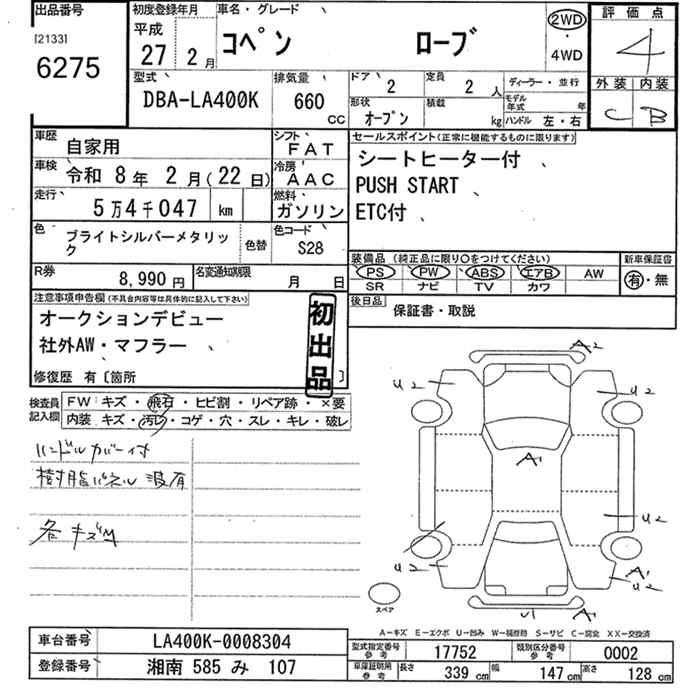 出品番号
[2133]
6275
初度登録年月
平成
27 年 2 月
車名・グレード
コペン ローブ
2WD
4WD
評価点
4
外装 内装
C B
型式
DBA-LA400K
排気量
660 CC
ドア 2
定員 2 人
形状 オープン
積載 kg
ディーラー・並行
モデル年式 年
ハンドル 左・右
車歴 自家用
シフト FAT
車検 令和 8 年 2 月 (22 日)
冷房 AAC
走行 5万4千047 km
燃料 ガソリン
色 ブライトシルバーメタリック
色替
色コード S28
R券 8,990 円
名変通知期限 月 日
セールスポイント(正常に機能するものに限ります)
シートヒーター付 、
PUSH START 、
ETC付 、
装備品 (純正品に限り○をつけてください)
PS PW ABS エアB AW
SR ナビ TV カワ
新車保証書
有・無
後日品 保証書・取説
注意事項申告欄 (不具合内容等は具体的に記入して下さい)
オークションデビュー
社外AW・マフラー 、
修復歴 有〔箇所 〕
初出品
検査員記入欄
FW: キズ・飛石・ヒビ割・リペア跡・×要
内装: キズ・汚レ・コゲ・穴・スレ・キレ・破レ
ハンドルカバー付
樹脂パネル 波有
各キズ凹
A2
U2 U2
A1
U2
U2 A1
U2
U1 A1
スペア
A-キズ E-エクボ U-凹み W-補修跡 S-サビ C-腐食 XX-交換済
車台番号 LA400K-0008304
登録番号 湘南 585 み 107
型式指定番号 参考 17752
類別区分番号 参考 0002
車庫証明用 参考 長さ 339 cm 幅 147 cm 高さ 128 cm